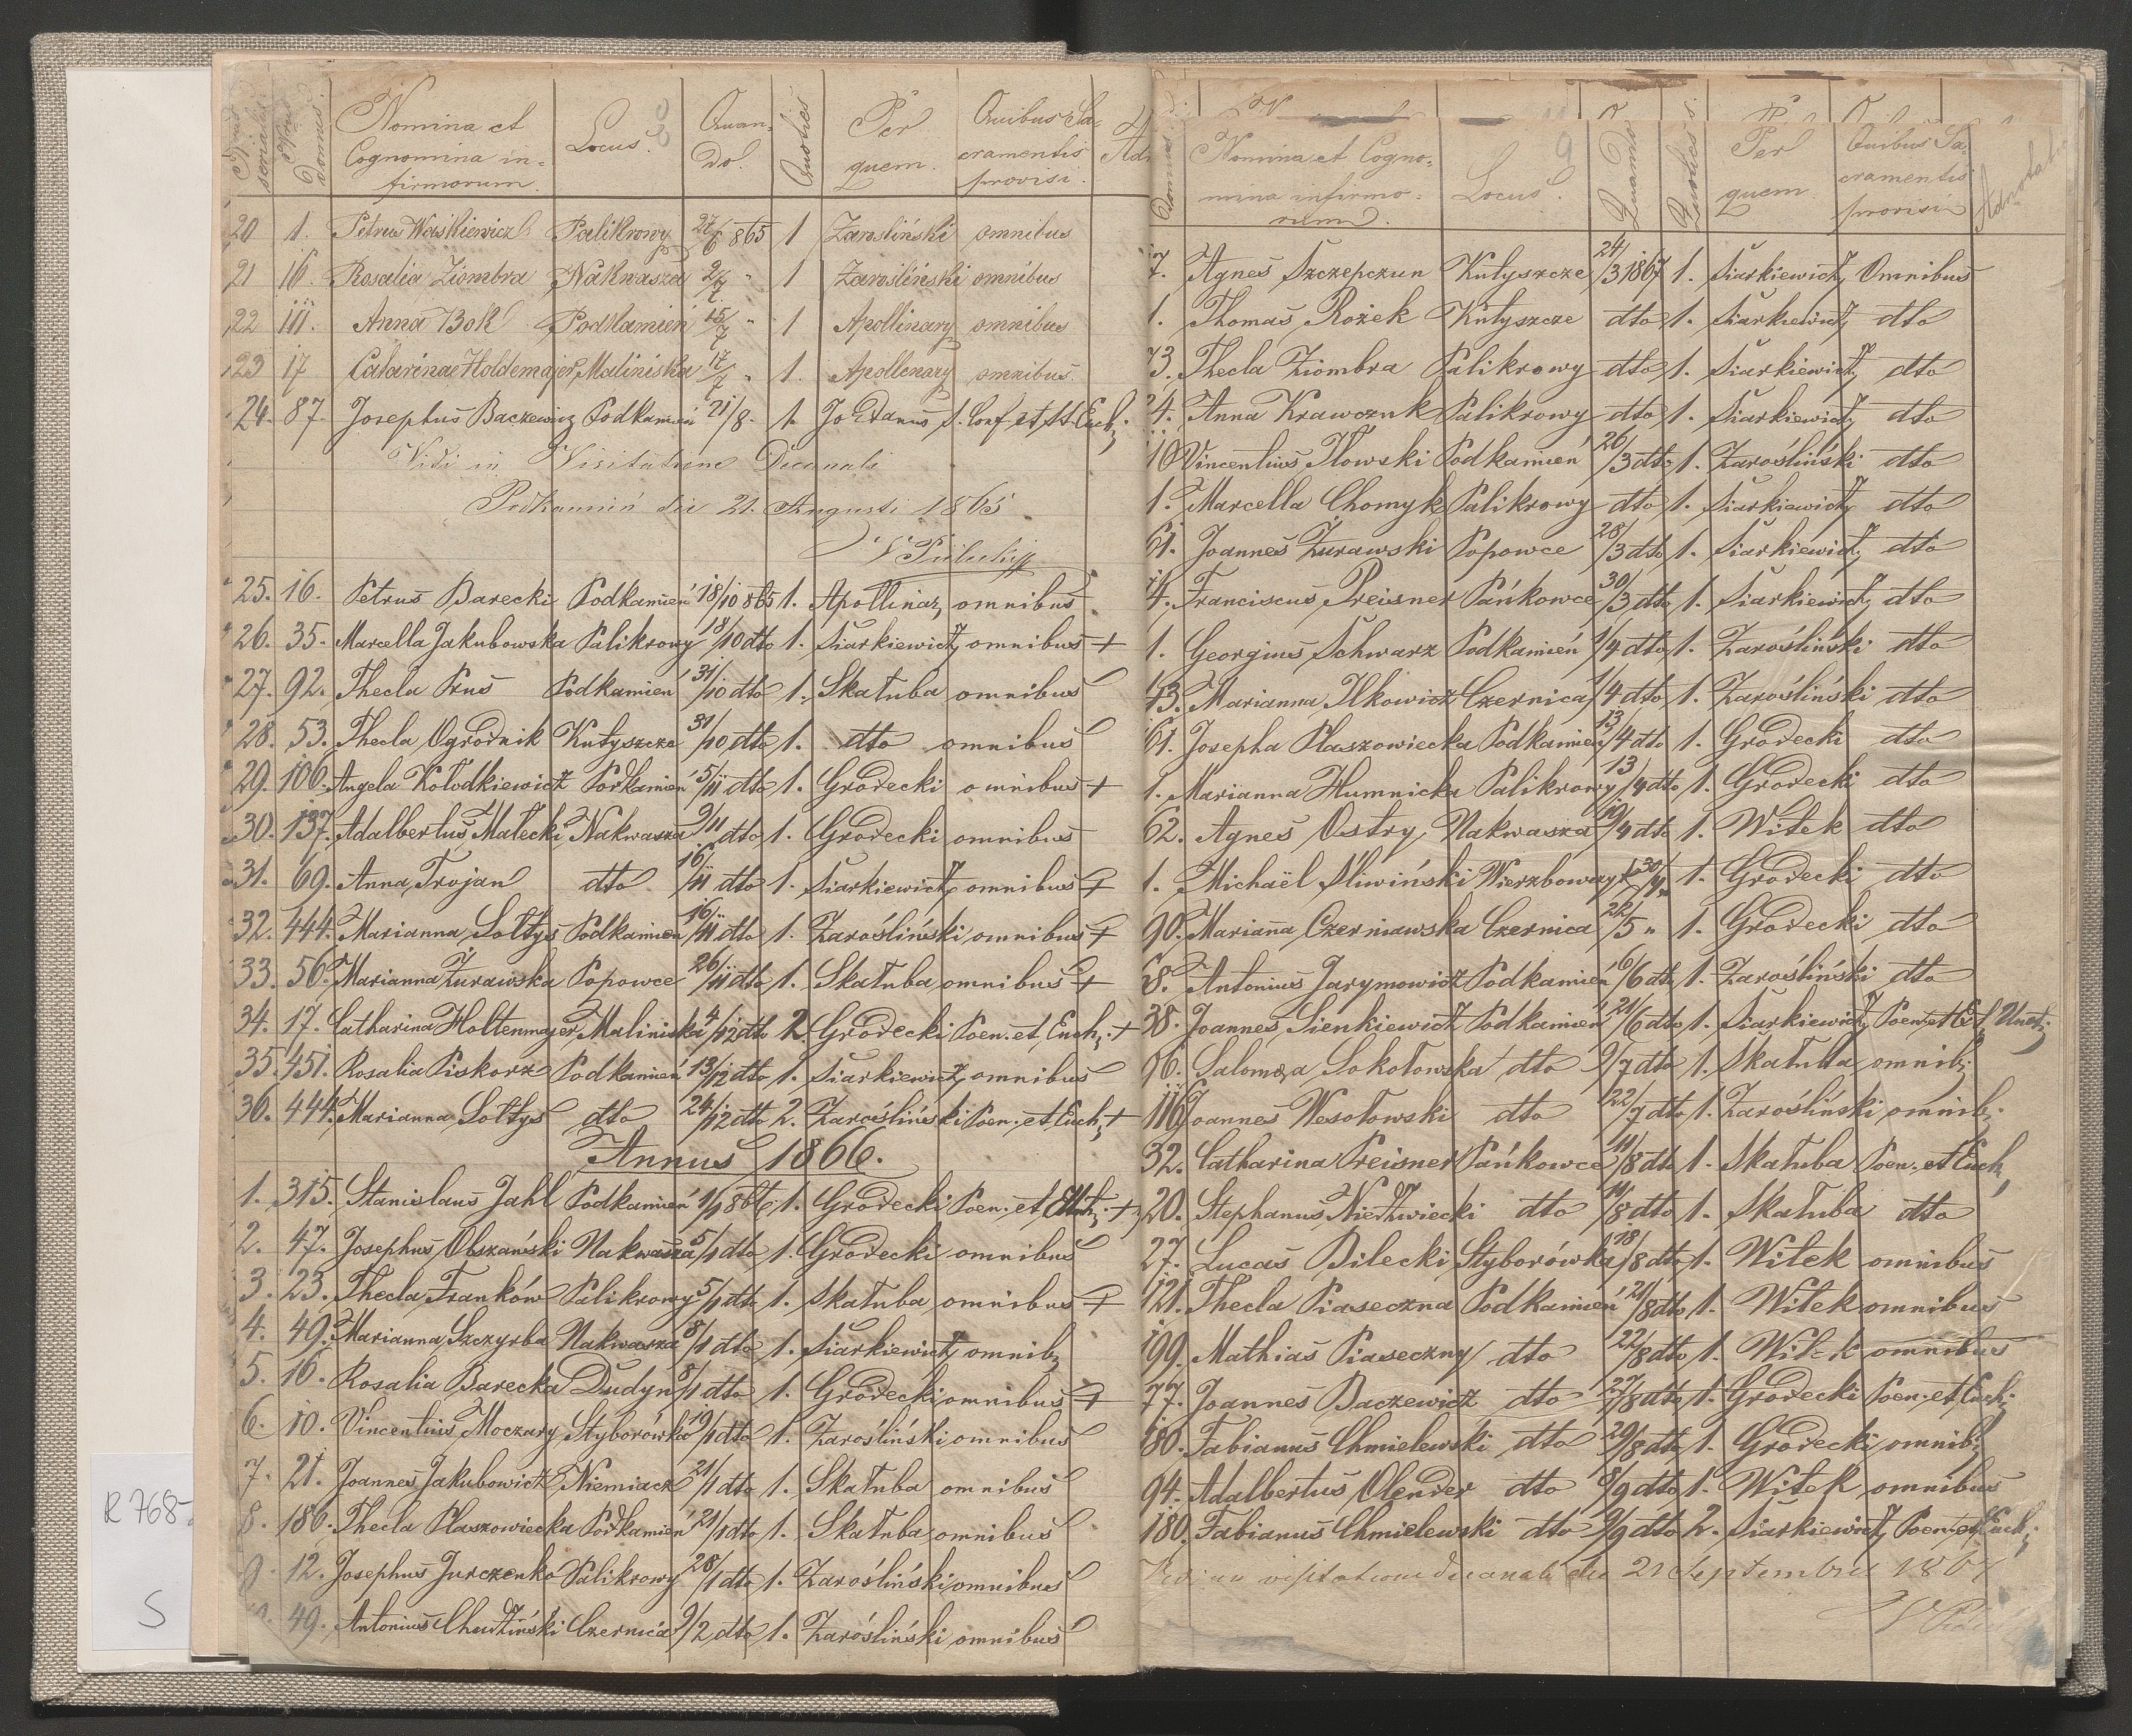 Nrus serialis
Nrus domus.
Nomina et Cognomina infirmorum.
Locus.
Quando.
Quoties
Per quem.
Quibus Sacramentis provisi.
20 1. Petrus Waśkiewicz Palikrowy 27/6 865 1 Zarosliński omnibus
21 16. Rosalia Ziombra Nakwasza 2/7 " 1 Zarosliński omnibus
22 111. Anna Bok Podkamień 15/7 " 1 Apollinary omnibus
23 17 Catarinae Holdemajer Maliniska 17/7 " 1. Apollenary omnibus.
24. 87. Josephus Baczewicz Podkamień 21/8. 1. Jordanus S. Conf et SS. Euch;
Vidi in Visitatione Decanali
Podkamień die 21. Augusti 1865
25. 16. Petrus Barecki Podkamień 18/10 865 1. Apollinar, omnibus
26. 35. Marcella Jakubowska Palikrowy 18/10 dto 1. Siarkiewicz, omnibus +
27. 92. Thecla Prus Podkamień 31/10 dto 1. Skałuba omnibus
28. 53. Thecla Ogrodnik Kutyszcze 31/10 dto 1. dto omnibus
29. 106. Angela Kołodkiewicz Podkamień 5/11 dto 1. Grodecki omnibus +
30. 137. Adalbertus Małecki Nakwasza 9/11 dto 1. Grodecki omnibus
31. 69. Anna Trojan dto 16/11 dto 1. Siarkiewicz, omnibus +
32. 444. Marianna Sołtys Podkamień 16/11 dto 1. Zarośliński omnibus +
33. 56. Marianna Żurawska Popowce 26/11 dto 1. Skałuba omnibus +
34. 17. Catharina Holtenmajer Maliniska 4/12 dto 2. Grodecki Poen. et Euch; +
35. 451. Rosalia Piskorz Podkamień 13/12 dto 1. Siarkiewicz, omnibus
36. 444. Marianna Sołtys dto 24/12 dto 2. Zarośliński Poen. et Euch; +
Annus 1866.
1. 315. Stanislaus Jahl Podkamień 1/1 866 1. Grodecki Poen. et +
2. 47. Josephus Olszański Nakwasza 5/1 dto 1. Grodecki omnibus
3. 23. Thecla Franków Palikrowy 5/1 dto 1. Skałuba omnibus +
4. 49. Marianna Szczyrba Nakwasza 8/1 dto 1. Siarkiewicz, omnib;
5. 16. Rosalia Barecka Dudyn 8/1 dto 1. Grodecki omnibus +
6. 10. Vincentius Moczary Styborówka 19/1 dto 1. Zarośliński omnibus
7. 21. Joannes Jakubowicz Niemiacz 21/1 dto 1. Skałuba omnibus
8. 186. Thecla Płaszowiecka Podkamień 21/1 dto 1. Skałuba omnibus
9. 12. Josephus Jurczenko Palikrowy 28/1 dto 1. Zarośliński omnibus
49. Antonius Chudziński Czernica 9/2 dto 1. Zarośliński omnibus
R 768
S
domus
Nomina et Cognomina infirmorum.
Locus.
9
Quando
Quoties
Per quem
Quibus Sacramentis provisi
7. Agnes Szczepczun Kutyszcze 24/3 1867 1. Siarkiewicz, Omnibus
1. Thomas Rożek Kutyszcze dto 1. Siarkiewicz, dto
73. Thecla Ziombra Palikrowy dto 1. Siarkiewicz, dto
24. Anna Krawczuk Palikrowy dto 1. Siarkiewicz, dto
10 Vincentius Iłowski Podkamień 26/3 dto 1. Zarośliński dto
1. Marcella Chomyk Palikrowy dto 1. Siarkiewicz, dto
61. Joannes Żurawski Popowce 28/3 dto 1. Siarkiewicz, dto
14. Franciscus Preisner Pańkowce 30/3 dto 1. Siarkiewicz, dto
1. Georgius Schwarz Podkamień 1/4 dto 1. Zarośliński dto
43. Marianna Ilkowicz Czernica 1/4 dto 1. Zarośliński dto
61. Josepha Płaszowiecka Podkamień 13/4 dto 1. Grodecki dto
1. Marianna Humnicka Palikrowy 13/4 dto 1. Grodecki dto
62. Agnes Ostry Nakwasza 19/4 dto 1. Witek dto
1. Michaël Śliwiński Wierzbowczyk 30/4 1. Grodecki dto
90. Marianna Czerniawska Czernica 22/5 " 1. Grodecki dto
58. Antonius Jarymowicz Podkamień 6/6 dto 1. Zarośliński dto
38. Joannes Sienkiewicz Podkamień 21/6 dto 1. Siarkiewicz, Poen. et Ext. Unct;
96. Salomea Sokołowska dto 9/7 dto 1. Skałuba omnib;
116. Joannes Wesołowski dto 22/7 dto 1. Zarośliński omnib;
32. Catharina Preisner Pańkowce 11/8 dto 1. Skałuba Poen. et Euch,
20. Stephanus Niedźwiecki dto 11/8 dto 1. Skałuba dto
27. Lucas Bilecki Styborówka 18/8 dto 1. Witek omnibus
121. Thecla Piaseczna Podkamień 21/8 dto 1. Witek omnibus
199. Mathias Piaseczny dto 22/8 dto 1. Witek omnibus
77. Joannes Baczewicz dto 27/8 dto 1. Grodecki Poen. et Euch;
180. Fabianus Chmielewski dto 29/8 dto 1. Grodecki omnib;
94. Adalbertus Olender dto 8/9 dto 1. Witek omnibus
180. Fabianus Chmielewski dto 9/9 dto 2. Siarkiewicz, Poen. et Euch;
visitatione decanali die 21 Septembris 1867